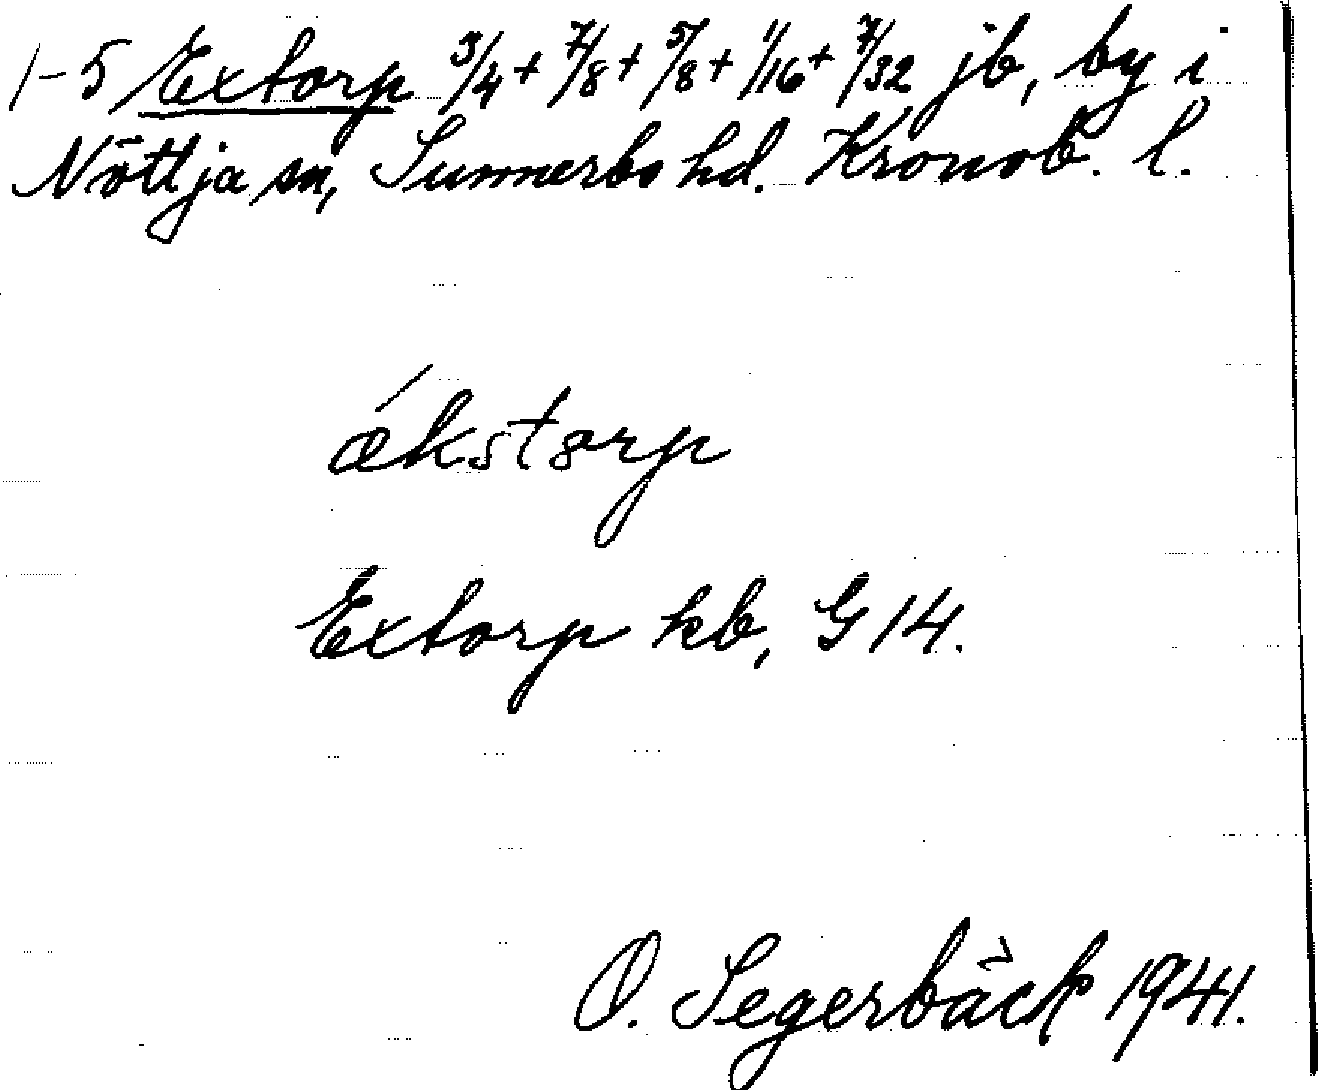 1-5 Extorp 3/4 + 7/8 + 5/8 + 1/16 + 7/32 jb, by i
Nöttja sn, Sunnerbo hd. Kronob. l.
ǽkstorp
Extorp kb, G 14.
O. Segerbäck 1941.